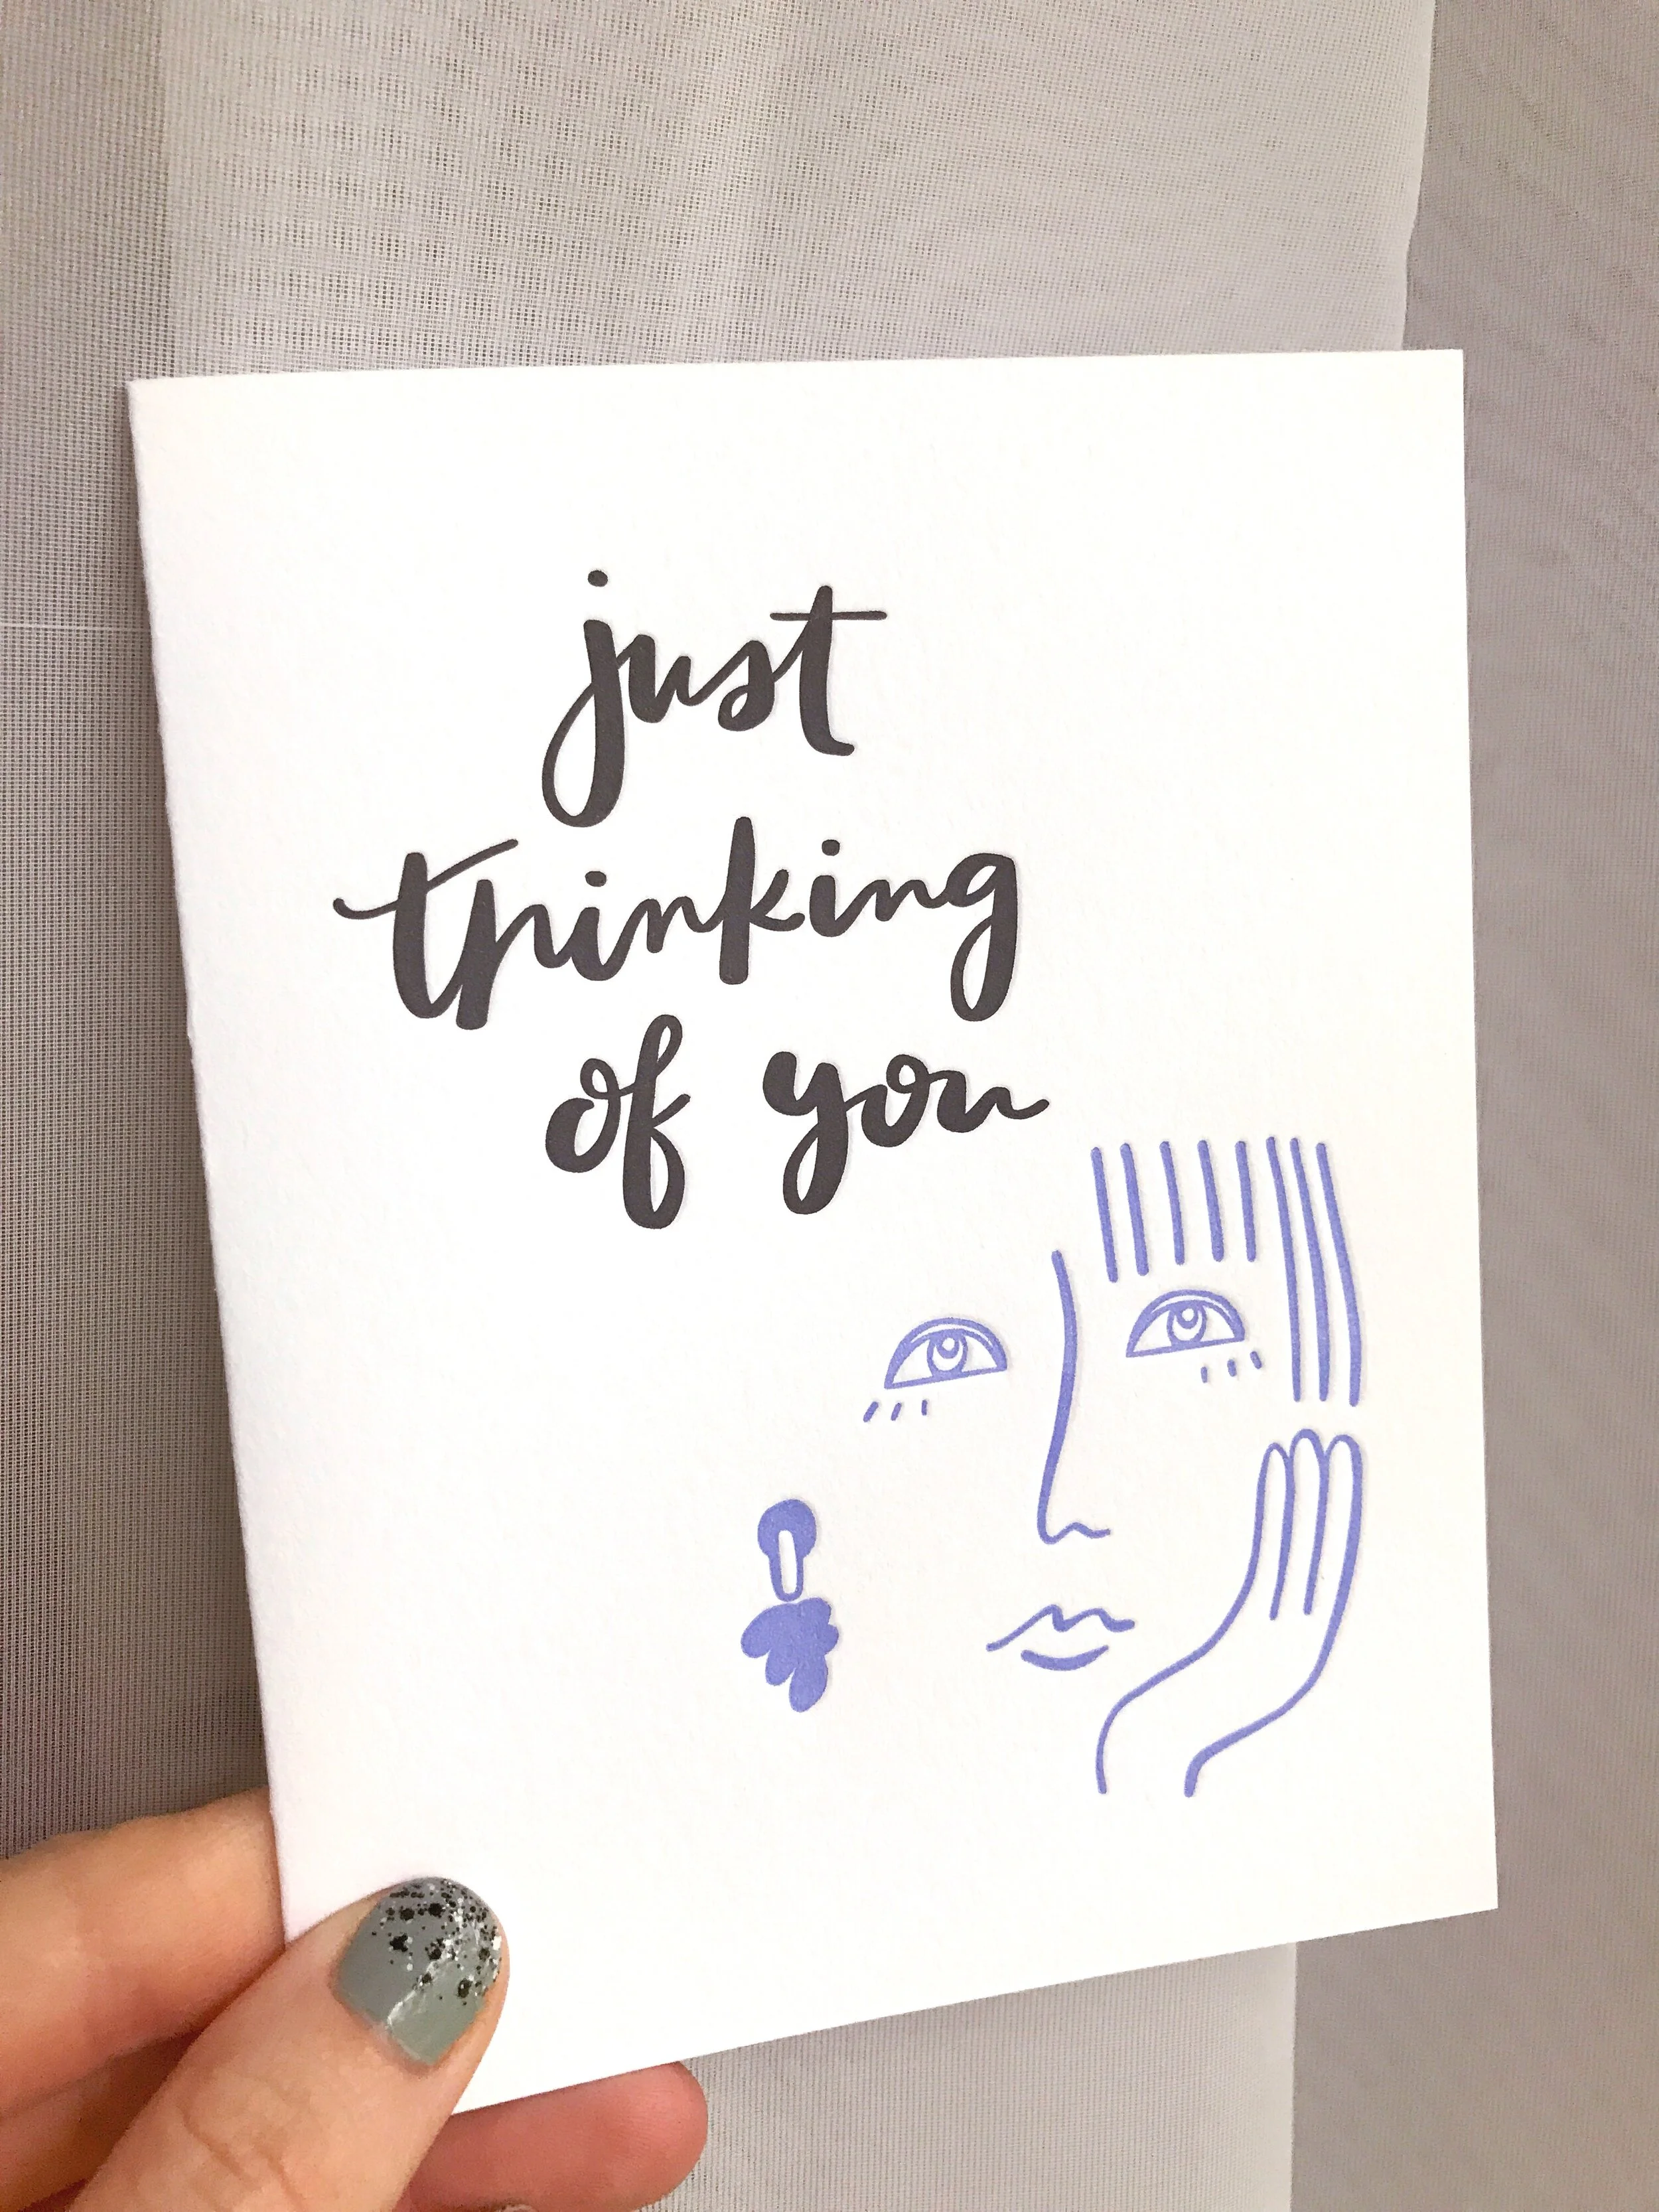 just
thinking
of you